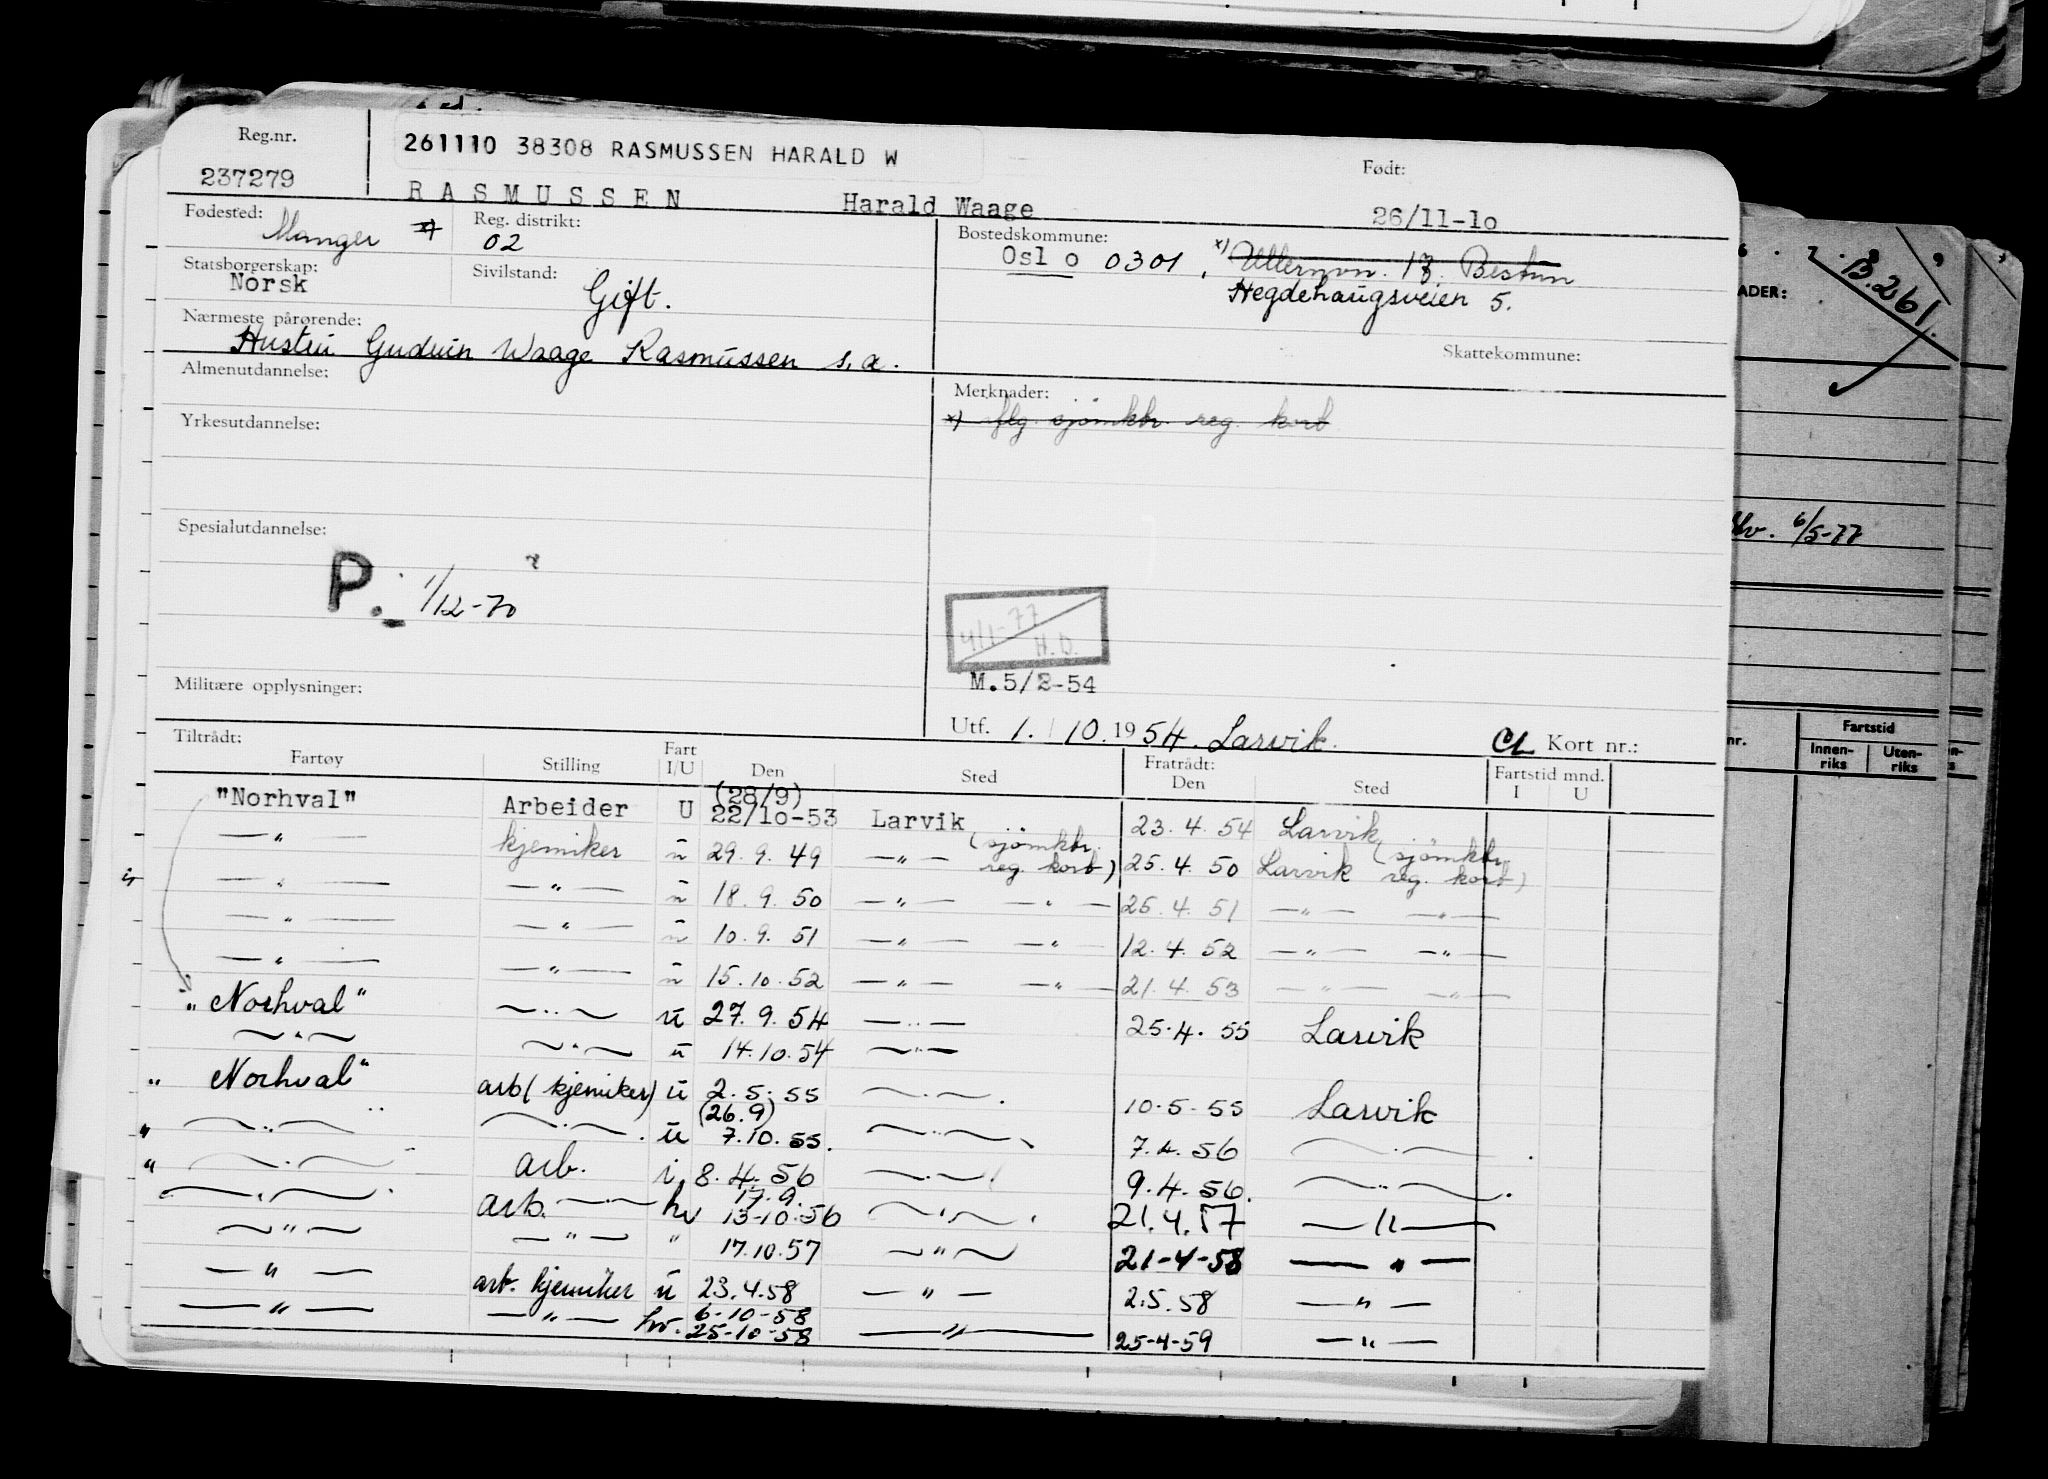 Reg.nr.
261110 38308 RASMUSSEN HARALD W
Født:
237279
RASMUSSEN Harald Waage 26/11-1o
Fødested: Manger *)
Reg. distrikt: 02
Bostedskommune: Oslo 0301, *) Ullernvn. 17. Bestun
Hegdehaugsveien 5.
Statsborgerskap: Norsk
Sivilstand: Gift.
Nærmeste pårørende:
Hustru Gudrun Waage Rasmussen s.a.
Skattekommune:
Almenutdannelse:
Merknader:
*) iflg. sjömktr. reg. kort
Yrkesutdannelse:
Spesialutdannelse:
P. 1/12-70
4/1-77
H.O.
M.5/2-54
Militære opplysninger:
Utf. 1. 10. 1954. Larvik. Kort nr.:
Tiltrådt: Fratrådt:
Fartøy Stilling Fart I/U Den Sted Den Sted Fartstid mnd. I U
"Norhval" Arbeider U (28/9) 22/1o-53 Larvik 23.4.54 Larvik
—"— kjemiker u 29.9.49 —"— (sjömktr. reg. kort) 25.4.50 Larvik (sjömktr. reg. kort)
—"— —"— u 18.9.50 —"— —"— 25.4.51 —"— —"—
—"— —"— u 10.9.51 —"— —"— 12.4.52 —"— —"—
—"— —"— u 15.10.52 —"— —"— 21.4.53 —"— —"—
"Norhval" —"— u 27.9.54 —"— 25.4.55 Larvik
—"— —"— u 14.10.54 —"—
" Norhval" arb (kjemiker) u 2.5.55 —"— 10.5.55 Larvik
" —"— —"— u (26.9) 7.10.55. —"— 7.4.56 —"—
" —"— arb. i 8.4.56 —"— 9.4.56. —"—
—"— arb. —"— hv 17.9. 13-10.56 —"— 21.4.57 —"—
—"— —"— " 17.10.57 —"— 21-4-58 —"—
—"— arb. kjemiker u 23.4.58 —"— 2.5.58 —"—
—"— —"— hv. 6-10-58 25-10-58 —"— 25-4-59 —"—
B.261.
ADER:
6/5-77
nr.
Fartstid
Innen-
riks
Uten-
riks